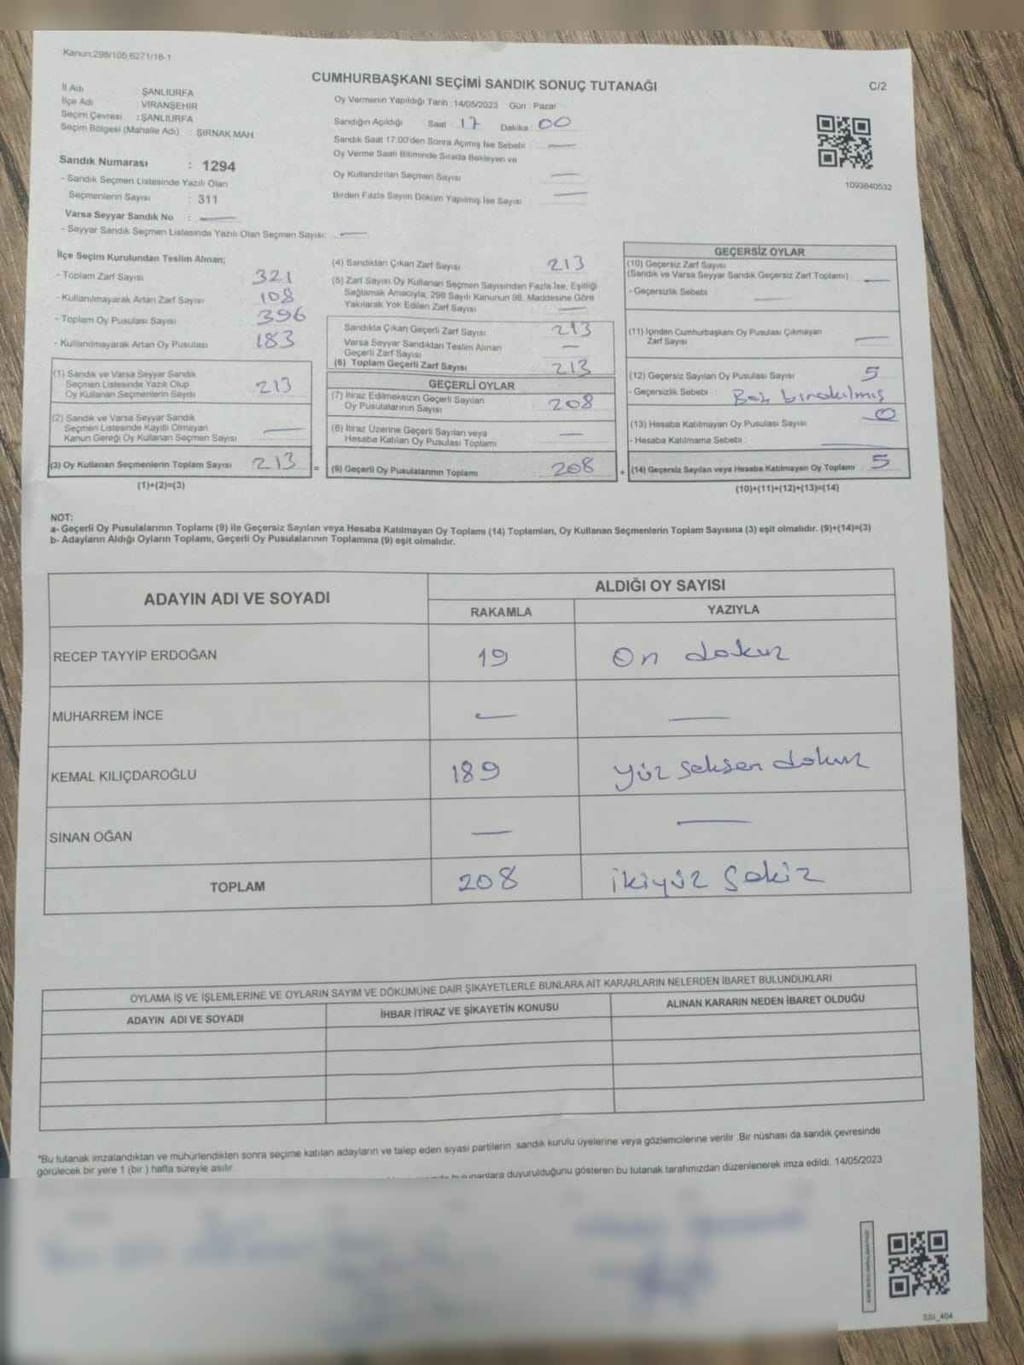 Kanun:298/105,6271/16-1
CUMHURBAŞKANI SEÇİMİ SANDIK SONUÇ TUTANAĞI
C/2
İl Adı ŞANLIURFA
İlçe Adı VİRANŞEHİR
Seçim Çevresi : ŞANLIURFA
Seçim Bölgesi (Mahalle Adı) : ŞIRNAK MAH
Sandık Numarası : 1294
- Sandık Seçmen Listesinde Yazılı Olan
Seçmenlerin Sayısı : 311
Varsa Seyyar Sandık No : —
- Seyyar Sandık Seçmen Listesinde Yazılı Olan Seçmen Sayısı: —
Oy Vermenin Yapıldığı Tarih :14/05/2023 Gün : Pazar
Sandığın Açıldığı Saat : 17 Dakika : 00
Sandık Saat 17:00'den Sonra Açımış İse Sebebi —
Oy Verme Saati Bitiminde Sırada Bekleyen ve
Oy Kullandırılan Seçmen Sayısı —
Birden Fazla Sayım Döküm Yapılmış İse Sayısı —
1093840532
İlçe Seçim Kurulundan Teslim Alınan;
- Toplam Zarf Sayısı 321
- Kullanılmayarak Artan Zarf Sayısı 108
- Toplam Oy Pusulası Sayısı 396
- Kullanılmayarak Artan Oy Pusulası 183
(1) Sandık ve Varsa Seyyar Sandık
Seçmen Listesinde Yazılı Olup
Oy Kullanan Seçmenlerin Sayısı 213
(2) Sandık ve Varsa Seyyar Sandık
Seçmen Listesinde Kayıtlı Olmayan
Kanun Gereği Oy Kullanan Seçmen Sayısı —
(3) Oy Kullanan Seçmenlerin Toplam Sayısı 213 =
(1)+(2)=(3)
(4) Sandıktan Çıkan Zarf Sayısı 213
(5) Zarf Sayısı Oy Kullanan Seçmen Sayısından Fazla İse, Eşitliği
Sağlamak Amacıyla, 298 Sayılı Kanunun 98. Maddesine Göre
Yakılarak Yok Edilen Zarf Sayısı —
Sandıkta Çıkan Geçerli Zarf Sayısı 213
Varsa Seyyar Sandıktan Teslim Alınan
Geçerli Zarf Sayısı —
(6) Toplam Geçerli Zarf Sayısı 213
GEÇERLİ OYLAR
(7) İtiraz Edilmeksizin Geçerli Sayılan
Oy Pusulalarının Sayısı 208
(8) İtiraz Üzerine Geçerli Sayılan veya
Hesaba Katılan Oy Pusulası Toplamı —
(9) Geçerli Oy Pusulalarının Toplamı 208 +
GEÇERSİZ OYLAR
(10) Geçersiz Zarf Sayısı
(Sandık ve Varsa Seyyar Sandık Geçersiz Zarf Toplamı) —
- Geçersizlik Sebebi —
(11) İçinden Cumhurbaşkanı Oy Pusulası Çıkmayan
Zarf Sayısı —
(12) Geçersiz Sayılan Oy Pusulası Sayısı 5
- Geçersizlik Sebebi Boş bırakılmış
(13) Hesaba Katılmayan Oy Pusulası Sayısı 0
- Hesaba Katılmama Sebebi —
(14) Geçersiz Sayılan veya Hesaba Katılmayan Oy Toplamı 5
(10)+(11)+(12)+(13)=(14)
NOT:
a- Geçerli Oy Pusulalarının Toplamı (9) ile Geçersiz Sayılan veya Hesaba Katılmayan Oy Toplamı (14) Toplamları, Oy Kullanan Seçmenlerin Toplam Sayısına (3) eşit olmalıdır. (9)+(14)=(3)
b- Adayların Aldığı Oyların Toplamı, Geçerli Oy Pusulalarının Toplamına (9) eşit olmalıdır.
ADAYIN ADI VE SOYADI ALDIĞI OY SAYISI
RAKAMLA YAZIYLA
RECEP TAYYİP ERDOĞAN 19 On dokuz
MUHARREM İNCE — —
KEMAL KILIÇDAROĞLU 189 yüz seksen dokuz
SİNAN OĞAN — —
TOPLAM 208 ikiyüz Sekiz
OYLAMA İŞ VE İŞLEMLERİNE VE OYLARIN SAYIM VE DÖKÜMÜNE DAİR ŞİKAYETLERLE BUNLARA AİT KARARLARIN NELERDEN İBARET BULUNDUKLARI
ADAYIN ADI VE SOYADI İHBAR İTİRAZ VE ŞİKAYETİN KONUSU ALINAN KARARIN NEDEN İBARET OLDUĞU
"Bu tutanak imzalandıktan ve mühürlendikten sonra seçime katılan adayların ve talep eden siyasi partilerin sandık kurulu üyelerine veya gözlemcilerine verilir. Bir nüshası da sandık çevresinde
görülecek bir yere 1 (bir ) hafta süreyle asılır.
bulunanlara duyurulduğunu gösteren bu tutanak tarafımızdan düzenlenerek imza edildi. 14/05/2023
SSI_404